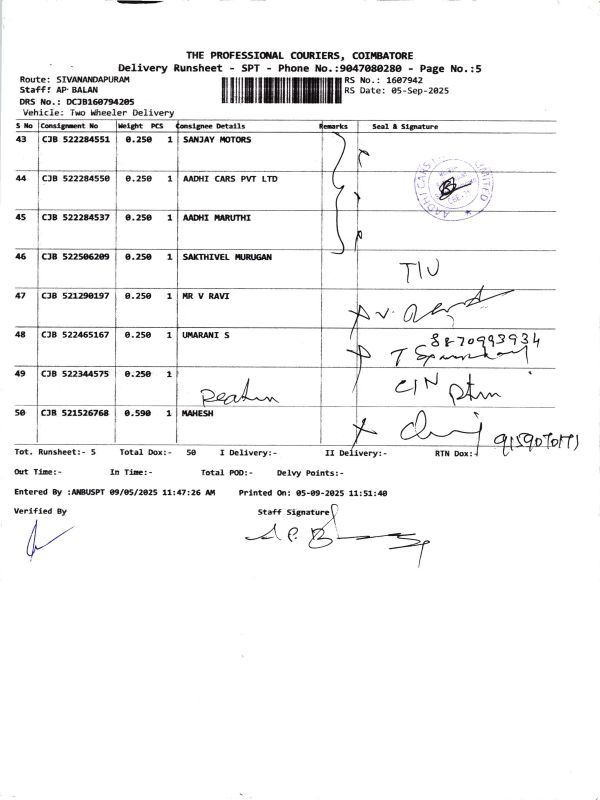 THE PROFESSIONAL COURIERS, COIMBATORE
Delivery Runsheet - SPT - Phone No.:9047080280 - Page No.:5
Route: SIVANANDAPURAM
Staff: AP BALAN
DRS No.: DCJB160794205
Vehicle: Two Wheeler Delivery
RS No.: 1607942
RS Date: 05-Sep-2025
S No Consignment No Weight PCS Consignee Details Remarks Seal & Signature
43 CJB 522284551 0.250 1 SANJAY MOTORS
44 CJB 522284550 0.250 1 AADHI CARS PVT LTD
AADHI CARS LIMITED
45 CJB 522284537 0.250 1 AADHI MARUTHI
46 CJB 522506209 0.250 1 SAKTHIVEL MURUGAN
47 CJB 521290197 0.250 1 MR V RAVI
48 CJB 522465167 0.250 1 UMARANI S 8870993934
49 CJB 522344575 0.250 1
50 CJB 521526768 0.590 1 MAHESH
Tot. Runsheet:- 5 Total Dox:- 50 I Delivery:- II Delivery:- RTN Dox:-
Out Time:- In Time:- Total POD:- Delvy Points:-
Entered By :ANBUSPT 09/05/2025 11:47:26 AM Printed On: 05-09-2025 11:51:40
Verified By Staff Signature